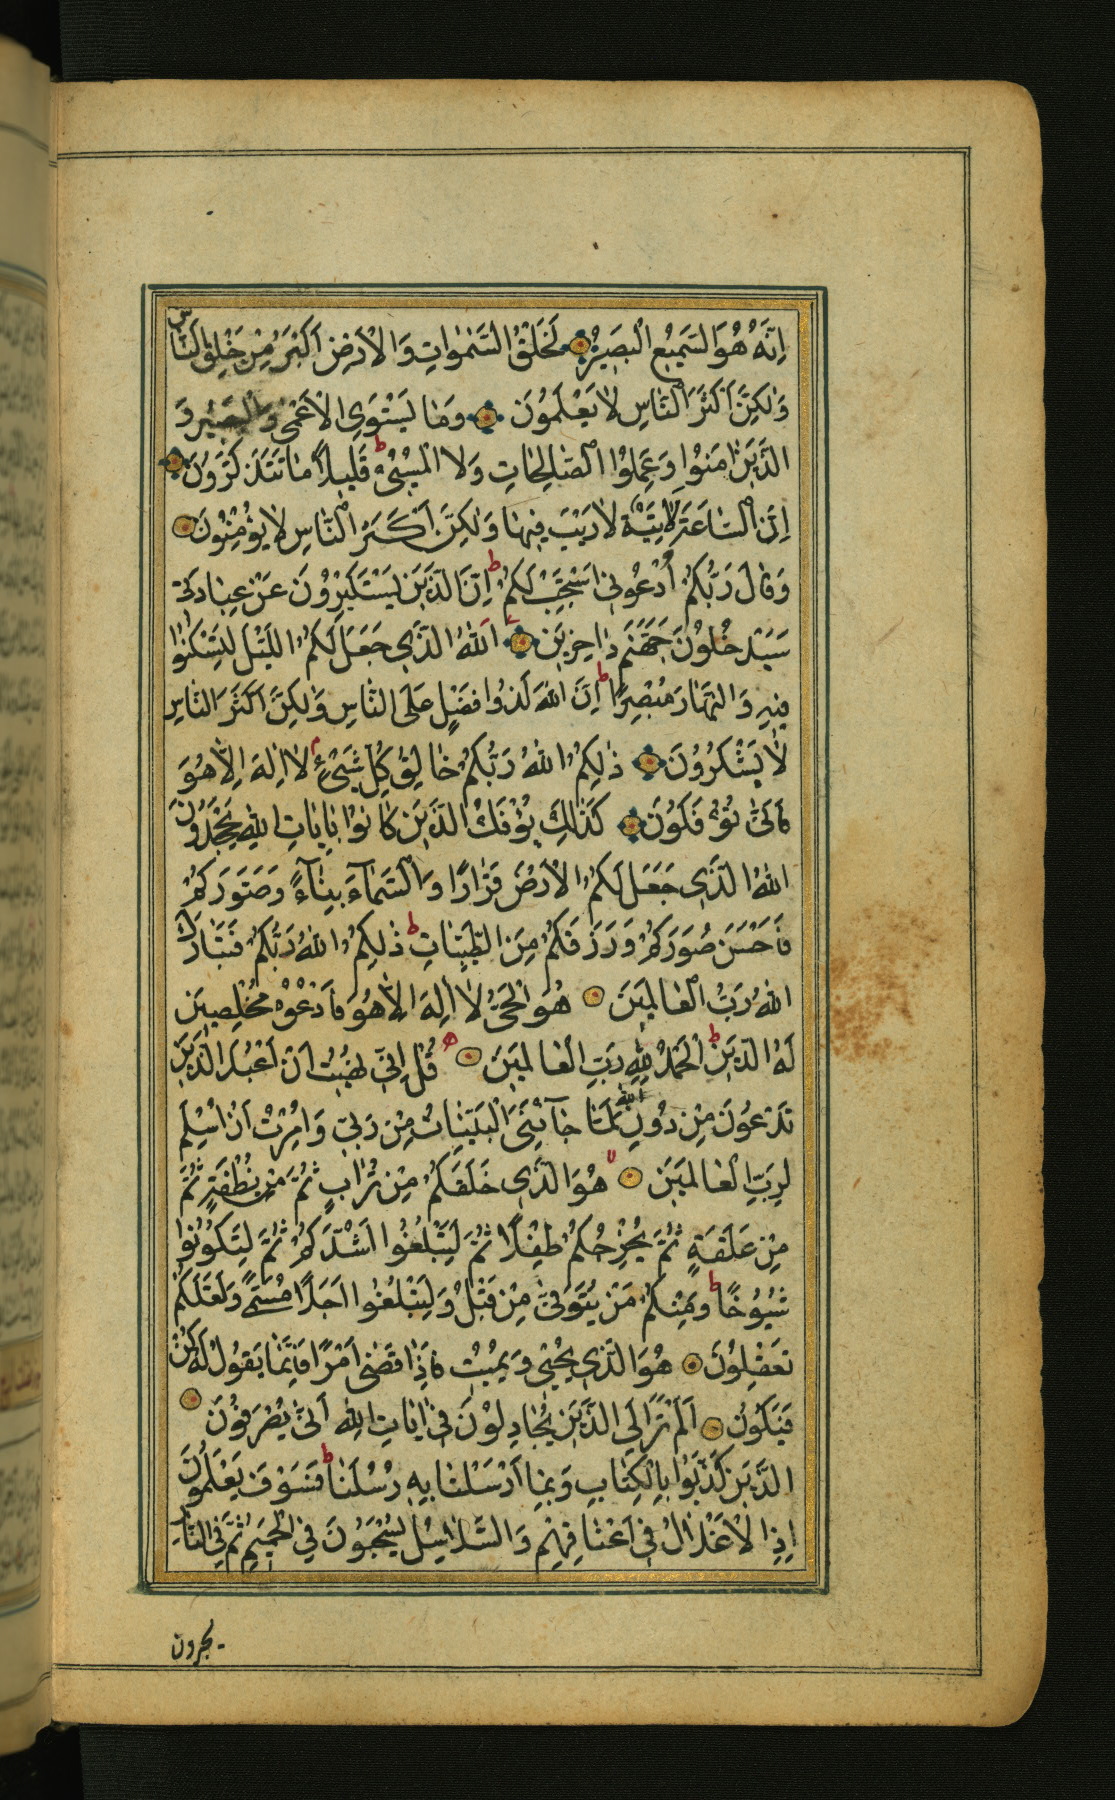 اِنَّهُ هُوَ السَّمِیعُ الْبَصِیرُ لَخَلْقُ السَّمٰوَاتِ وَالْاَرْضِ اَكْبَرُ مِنْ خَلْقِ النَّاسِ
وَلٰكِنَّ اَكْثَرَ النَّاسِ لَا یَعْلَمُونَ وَمَا یَسْتَوِی الْاَعْمٰی وَالْبَصِیرُ وَ
الَّذِینَ اٰمَنُوا وَعَمِلُوا الصَّالِحَاتِ وَلَا الْمُسِیٓءُ قَلِیلًا مَا تَتَذَكَّرُونَ
اِنَّ السَّاعَةَ لَاٰتِیَةٌ لَا رَیْبَ فِیهَا وَلٰكِنَّ اَكْثَرَ النَّاسِ لَا یُؤْمِنُونَ
وَقَالَ رَبُّكُمُ ادْعُونِی اَسْتَجِبْ لَكُمْ اِنَّ الَّذِینَ یَسْتَكْبِرُونَ عَنْ عِبَادَتِی
سَیَدْخُلُونَ جَهَنَّمَ دَاخِرِینَ اَللّٰهُ الَّذِی جَعَلَ لَكُمُ اللَّیْلَ لِتَسْكُنُوا
فِیهِ وَالنَّهَارَ مُبْصِرًا اِنَّ اللّٰهَ لَذُوا فَضْلٍ عَلَی النَّاسِ وَلٰكِنَّ اَكْثَرَ النَّاسِ
لَا یَشْكُرُونَ ذٰلِكُمُ اللّٰهُ رَبُّكُمْ خَالِقُ كُلِّ شَیْءٍ لَا اِلٰهَ اِلَّا هُوَ
فَاَنّٰی تُؤْفَكُونَ كَذٰلِكَ یُؤْفَكُ الَّذِینَ كَانُوا بِاٰیَاتِ اللّٰهِ یَجْحَدُونَ
اَللّٰهُ الَّذِی جَعَلَ لَكُمُ الْاَرْضَ قَرَارًا وَالسَّمَآءَ بِنَآءً وَصَوَّرَكُمْ
فَاَحْسَنَ صُوَرَكُمْ وَرَزَقَكُمْ مِنَ الطَّیِّبَاتِ ذٰلِكُمُ اللّٰهُ رَبُّكُمْ فَتَبَارَكَ
اللّٰهُ رَبُّ الْعَالَمِینَ هُوَ الْحَیُّ لَا اِلٰهَ اِلَّا هُوَ فَادْعُوهُ مُخْلِصِینَ
لَهُ الدِّینَ اَلْحَمْدُ لِلّٰهِ رَبِّ الْعَالَمِینَ قُلْ اِنِّی نُهِیتُ اَنْ اَعْبُدَ الَّذِینَ
تَدْعُونَ مِنْ دُونِ اللّٰهِ لَمَّا جَآئَنِیَ الْبَیِّنَاتُ مِنْ رَبِّی وَاُمِرْتُ اَنْ اُسْلِمَ
لِرَبِّ الْعَالَمِینَ هُوَ الَّذِی خَلَقَكُمْ مِنْ تُرَابٍ ثُمَّ مِنْ نُطْفَةٍ ثُمَّ
مِنْ عَلَقَةٍ ثُمَّ یُخْرِجُكُمْ طِفْلًا ثُمَّ لِتَبْلُغُوا اَشُدَّكُمْ ثُمَّ لِتَكُونُوا
شُیُوخًا وَمِنْكُمْ مَنْ یُتَوَفّٰی مِنْ قَبْلُ وَلِتَبْلُغُوا اَجَلًا مُسَمًّی وَلَعَلَّكُمْ
تَعْقِلُونَ هُوَ الَّذِی یُحْیِی وَیُمِیتُ فَاِذَا قَضٰی اَمْرًا فَاِنَّمَا یَقُولُ لَهُ كُنْ
فَیَكُونُ اَلَمْ تَرَ اِلَی الَّذِینَ یُجَادِلُونَ فِی اٰیَاتِ اللّٰهِ اَنّٰی یُصْرَفُونَ
الَّذِینَ كَذَّبُوا بِالْكِتَابِ وَبِمَا اَرْسَلْنَا بِهِ رُسُلَنَا فَسَوْفَ یَعْلَمُونَ
اِذِ الْاَغْلَالُ فِی اَعْنَاقِهِمْ وَالسَّلَاسِلُ یُسْحَبُونَ فِی الْحَمِیمِ ثُمَّ فِی النَّارِ